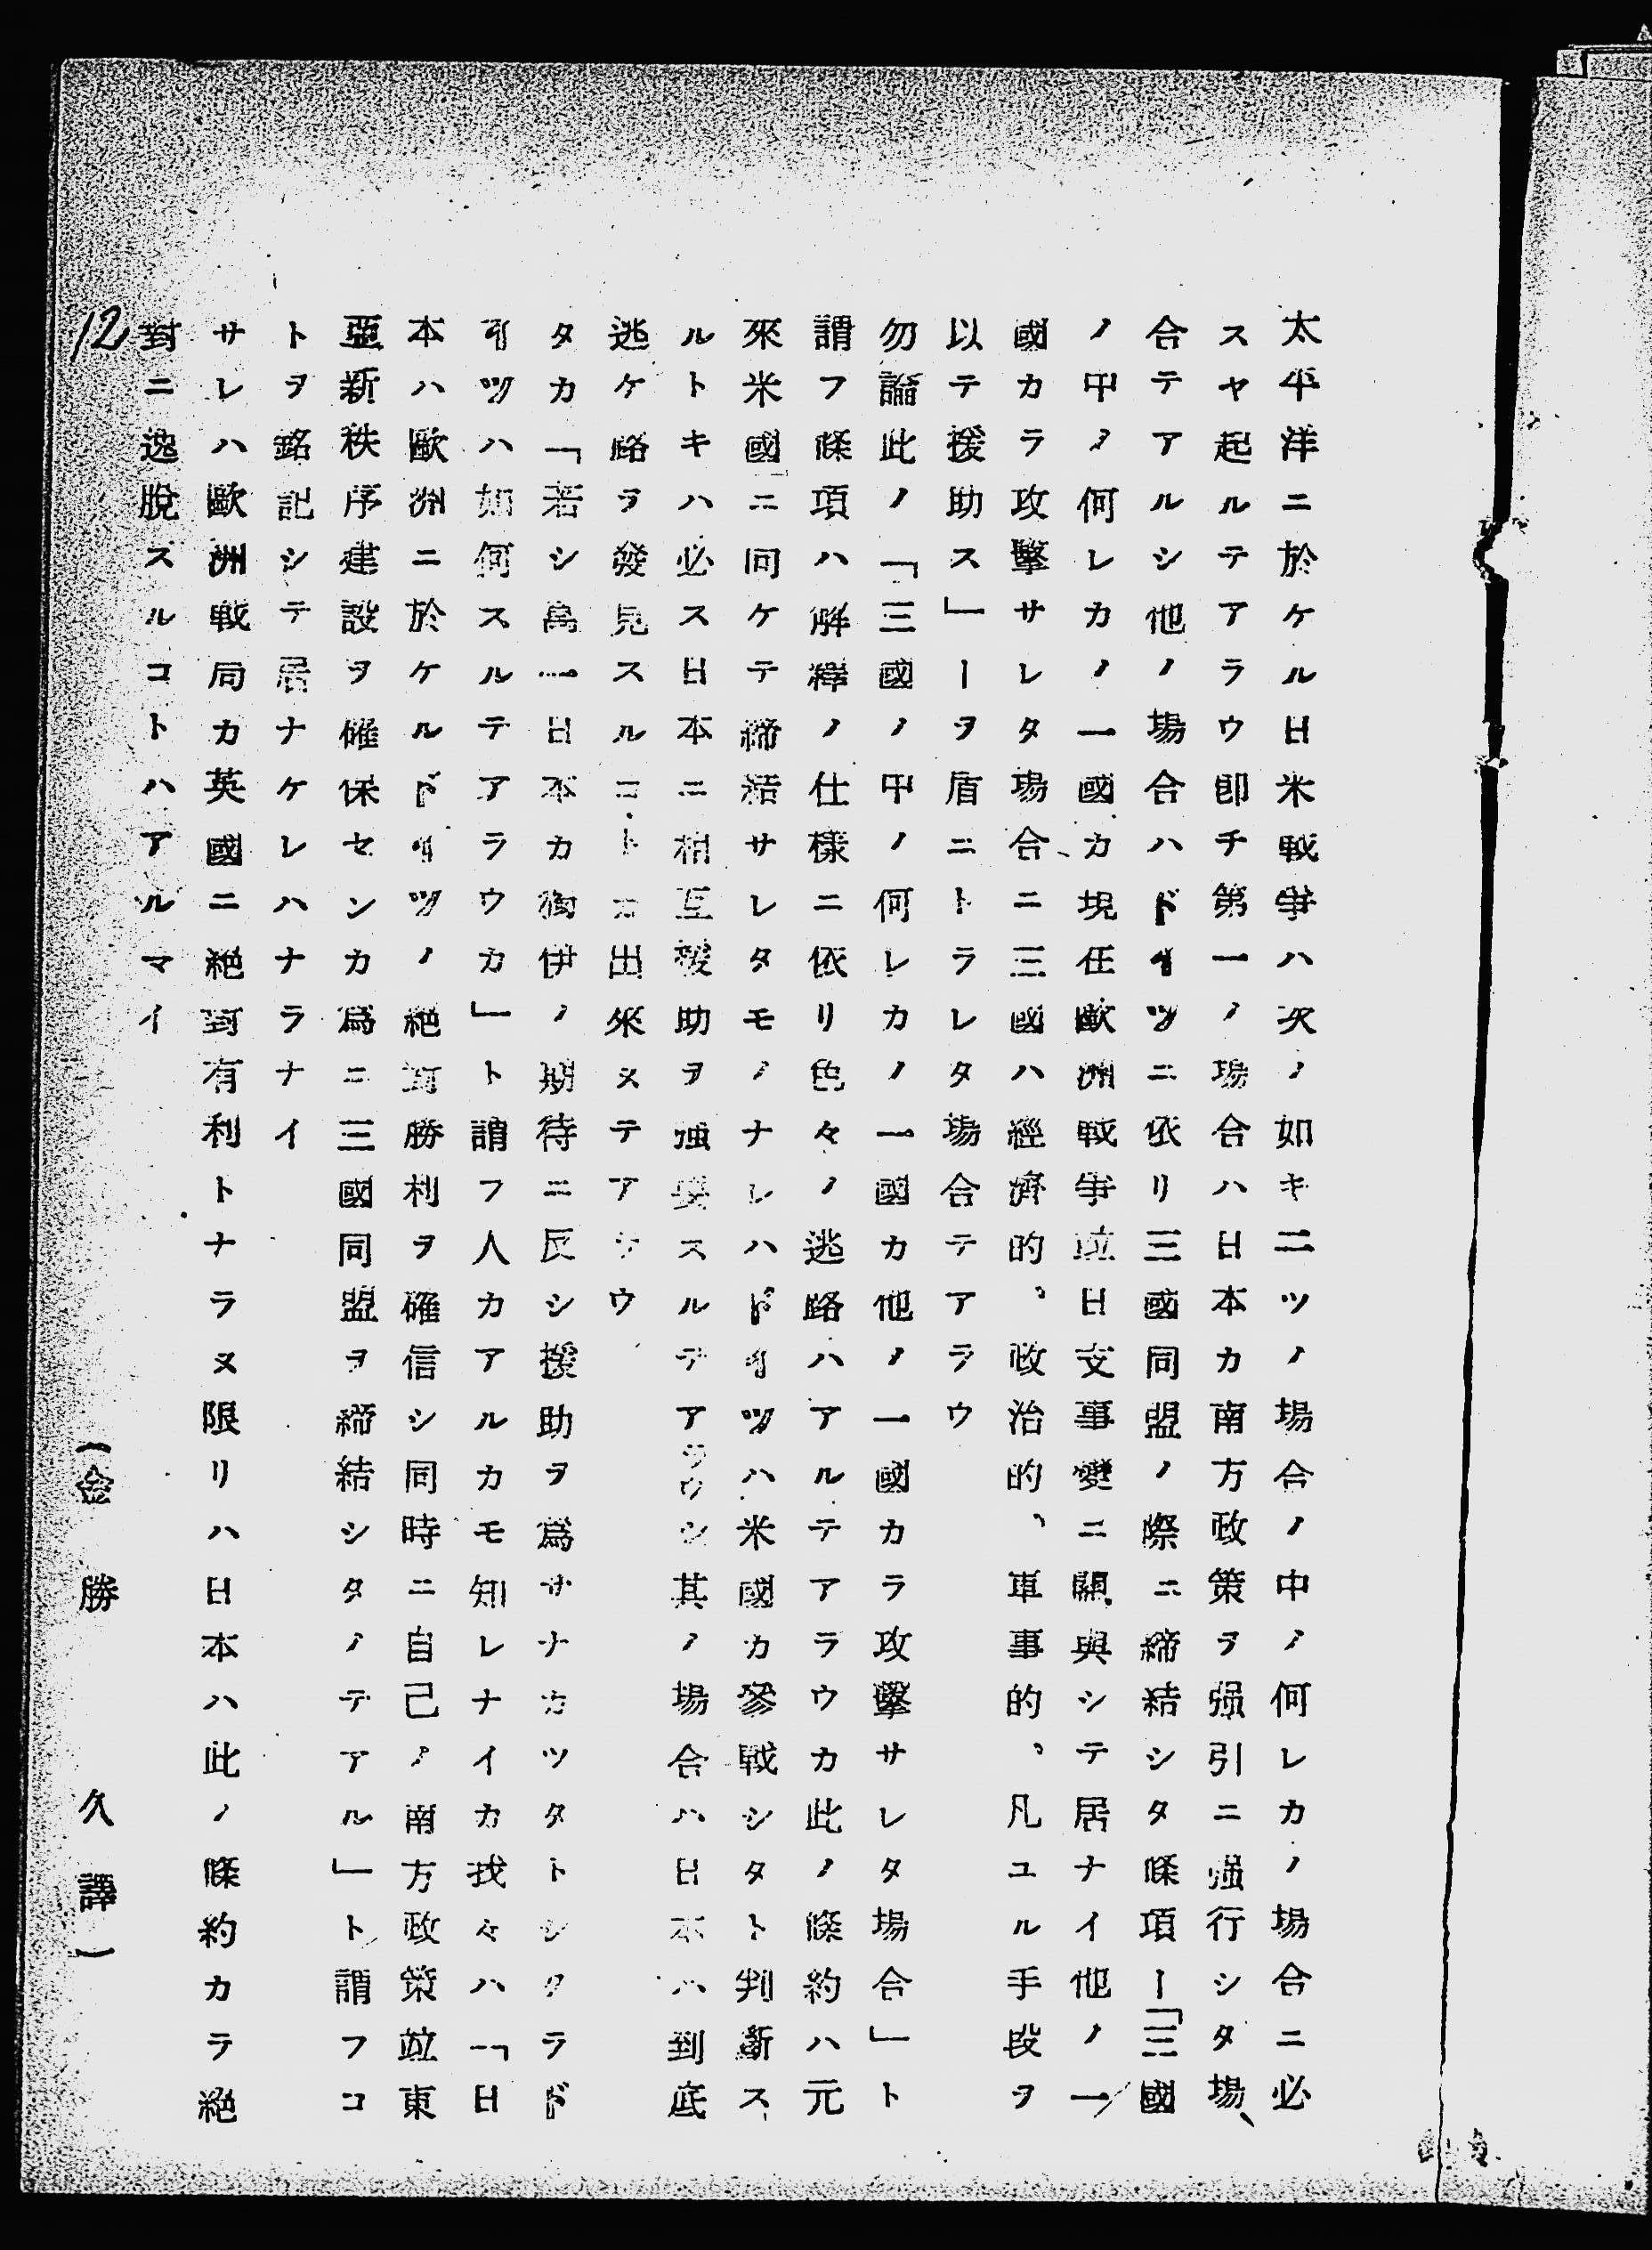 太平洋ニ於ケル日米戦爭ハ次ノ如キ二ツノ場合ノ中ノ何レカノ場合ニ必
スヤ起ルテアラウ卽チ第一ノ場合ハ日本カ南方政策ヲ强引ニ强行シタ場
合テアルシ他ノ場合ハドイツニ依リ三國同盟ノ際ニ締結シタ條項ー「三國
ノ中ノ何レカノ一國カ現在歐洲戦爭竝日支事變ニ關與シテ居ナイ他ノ一
國カラ攻擊サレタ場合ニ三國ハ經濟的、政治的、軍事的、凡ユル手段ヲ
以テ援助ス」ーヲ盾ニトラレタ場合テアラウ
勿論此ノ「三國ノ中ノ何レカノ一國カ他ノ一國カラ攻擊サレタ場合」ト
謂フ條項ハ解釋ノ仕樣ニ依リ色々ノ逃路ハアルテアラウカ此ノ條約ハ元
來米國ニ向ケテ締結サレタモノナレハドイツハ米國カ參戰シタト判斷ス
ルトキハ必ス日本ニ相互援助ヲ强要スルテアラウシ其ノ場合ハ日本ハ到底
逃ケ路ヲ發見スルコトカ出來ヌテアラウ
タカ「若シ萬一日本カ獨伊ノ期待ニ反シ援助ヲ爲サナカツタトシタラド
イツハ如何スルテアラウカ」ト謂フ人カアルカモ知レナイカ我々ハ「日
本ハ歐洲ニ於ケルドイツノ絕對勝利ヲ確信シ同時ニ自己ノ南方政策竝東
亞新秩序建設ヲ確保センカ爲ニ三國同盟ヲ締結シタノテアル」ト謂フコ
トヲ銘記シテ居ナケレハナラナイ
サレハ歐洲戰局カ英國ニ絕對有利トナラヌ限リハ日本ハ此ノ條約カラ絕
對ニ逸脫スルコトハアルマイ
(金勝久譯)
12